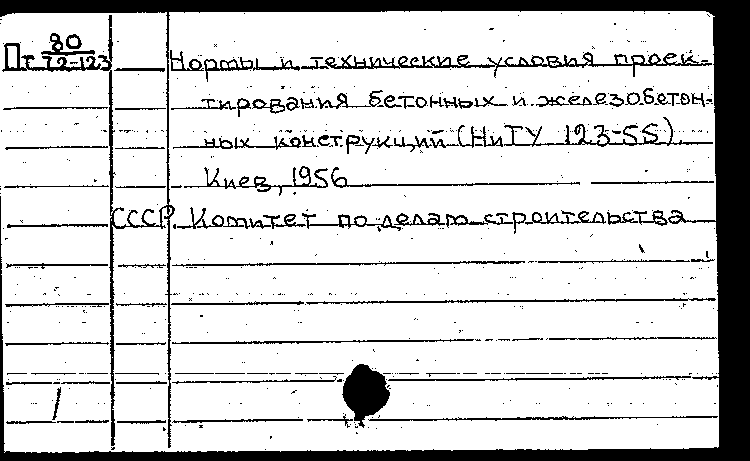 80
Пт 72-123 Нормы и технические условия проек-
тирования бетонных и железобетон-
ных конструкций (НиТУ 123-55).
Киев, 1956
СССР. Комитет по делам строительства